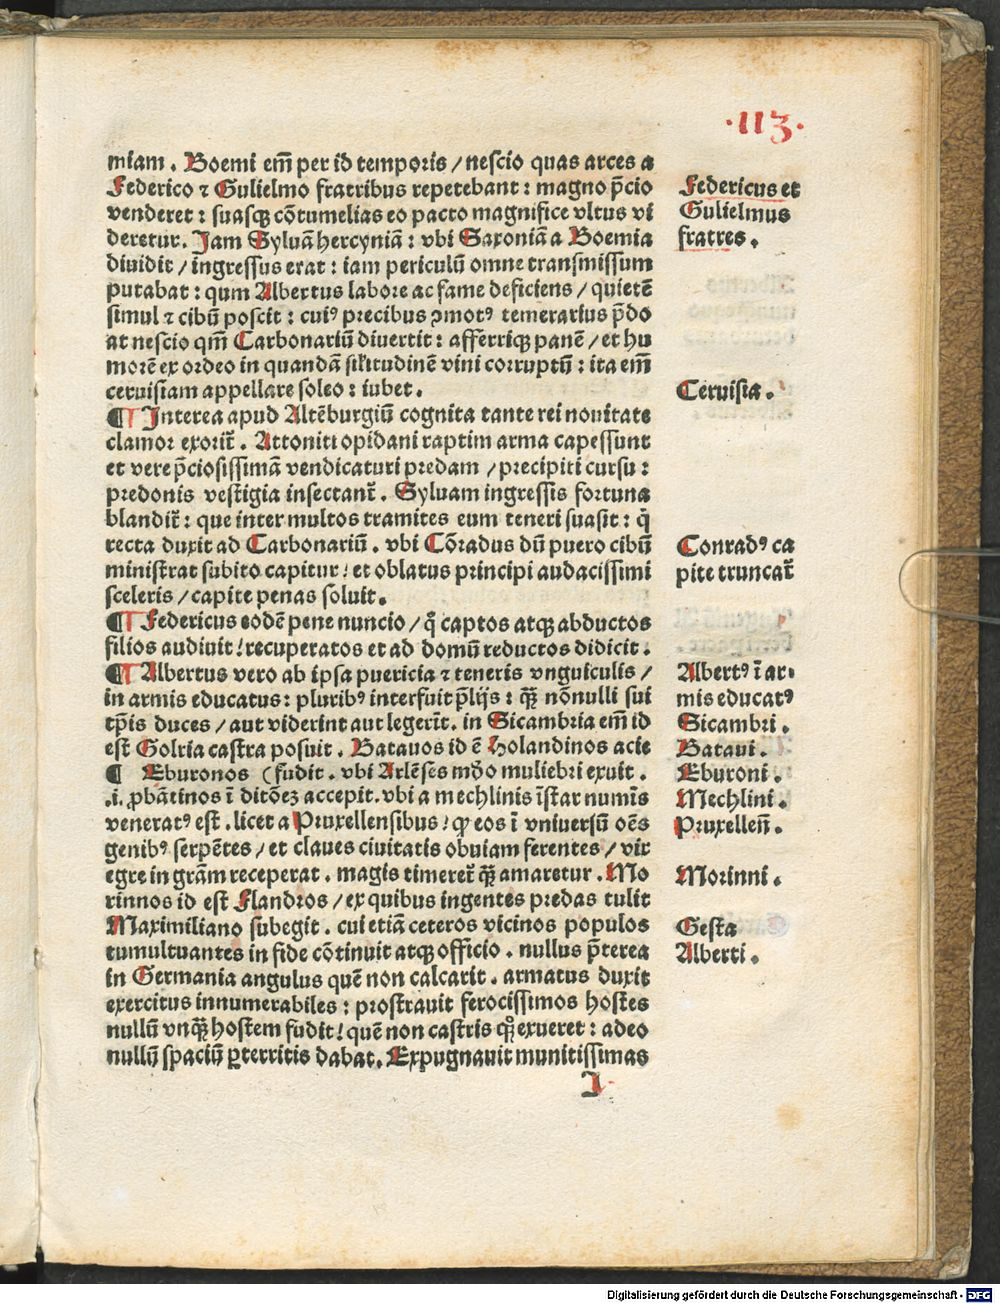 ·113·
miam . Boemi em̄ per id temporis / nescio quas arces a
Federico ⁊ Gulielmo fratribus repetebant : magno p̄cio
venderet : suasqꝫ cōtumelias eo pacto magnifice vltus vi
deretur. Jam Syluā hercyniā : vbi Saxoniā a Boemia
diuidit / ingressus erat : iam periculū omne transmissum
putabat : qum Albertus labore ac fame deficiens / quietē
simul ⁊ cibū poscit : cuiꝰ precibus ꝯmotꝰ temerarius p̄do
at nescio qm̄ Carbonariū diuertit : afferriqꝫ panē / et hu
morē ex ordeo in quandā sil̄itudinē vini corruptū : ita em̄
ceruisiam appellare soleo : iubet .
¶ Interea apud Altēburgiū cognita tante rei nouitate
clamor exorit̄ . Attoniti opidani raptim arma capessunt
et vere p̄ciosissimā vendicaturi predam / precipiti cursu :
predonis vestigia insectant̄ . Syluam ingressis fortuna
blandit̄ : que inter multos tramites eum teneri suasit : q̄
recta duxit ad Carbonariū . vbi Cōradus dū puero cibū
ministrat subito capitur ! et oblatus principi audacissimi
sceleris / capite penas soluit .
¶ Federicus eodē pene nuncio / q̄ captos atqꝫ abductos
filios audiuit ! recuperatos et ad domū reductos didicit .
¶ Albertus vero ab ipsa puericia ⁊ teneris vnguiculis /
in armis educatus : pluribꝰ interfuit p̄lijs : qꝫ̄ nōnulli sui
tp̄is duces / aut viderint aut legerīt . in Sicambria em̄ id
est Golria castra posuit . Batauos id ē Holandinos acie
¶ Eburonos ( fudit . vbi Arlēses mō muliebri exuit .
.i. ꝓbātinos ī ditōeꝫ accepit . vbi a mechlinis īstar numīs
veneratꝰ est . licet a Pruxellensibus ! ꝙ eos ī vniuersū oēs
genibꝰ serpētes / et claues ciuitatis obuiam ferentes / vix
egre in grām receperat . magis timeret̄ qꝫ̄ amaretur . Mo
rinnos id est Flandros / ex quibus ingentes predas tulit
Maximiliano subegit . cui etiā ceteros vicinos populos
tumultuantes in fide cōtinuit atqꝫ officio . nullus p̄terea
in Germania angulus quē non calcarit . armatus duxit
exercitus innumerabiles : prostrauit ferocissimos hostes
nullū vnqꝫ̄ hostem fudit ! quē non castris qꝫ exueret : adeo
nullū spaciū ꝑterritis dabat . Expugnauit munitissimas
I
Federicus et
Gulielmus
fratres .
Ceruisia .
Conradꝰ ca
pite truncat̄
Albertꝰ ī ar-
mis educatꝰ
Sicambri .
Bataui .
Eburoni .
Mechlini .
Pruxelleñ .
Morinni .
Gesta
Alberti .
Digitalisierung gefördert durch die Deutsche Forschungsgemeinschaft - DFG